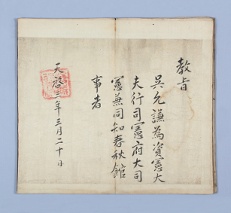 敎旨
吳允謙爲資憲大
夫行司憲府大司
憲兼同知春秋館
事者
天啓三年三月二十日